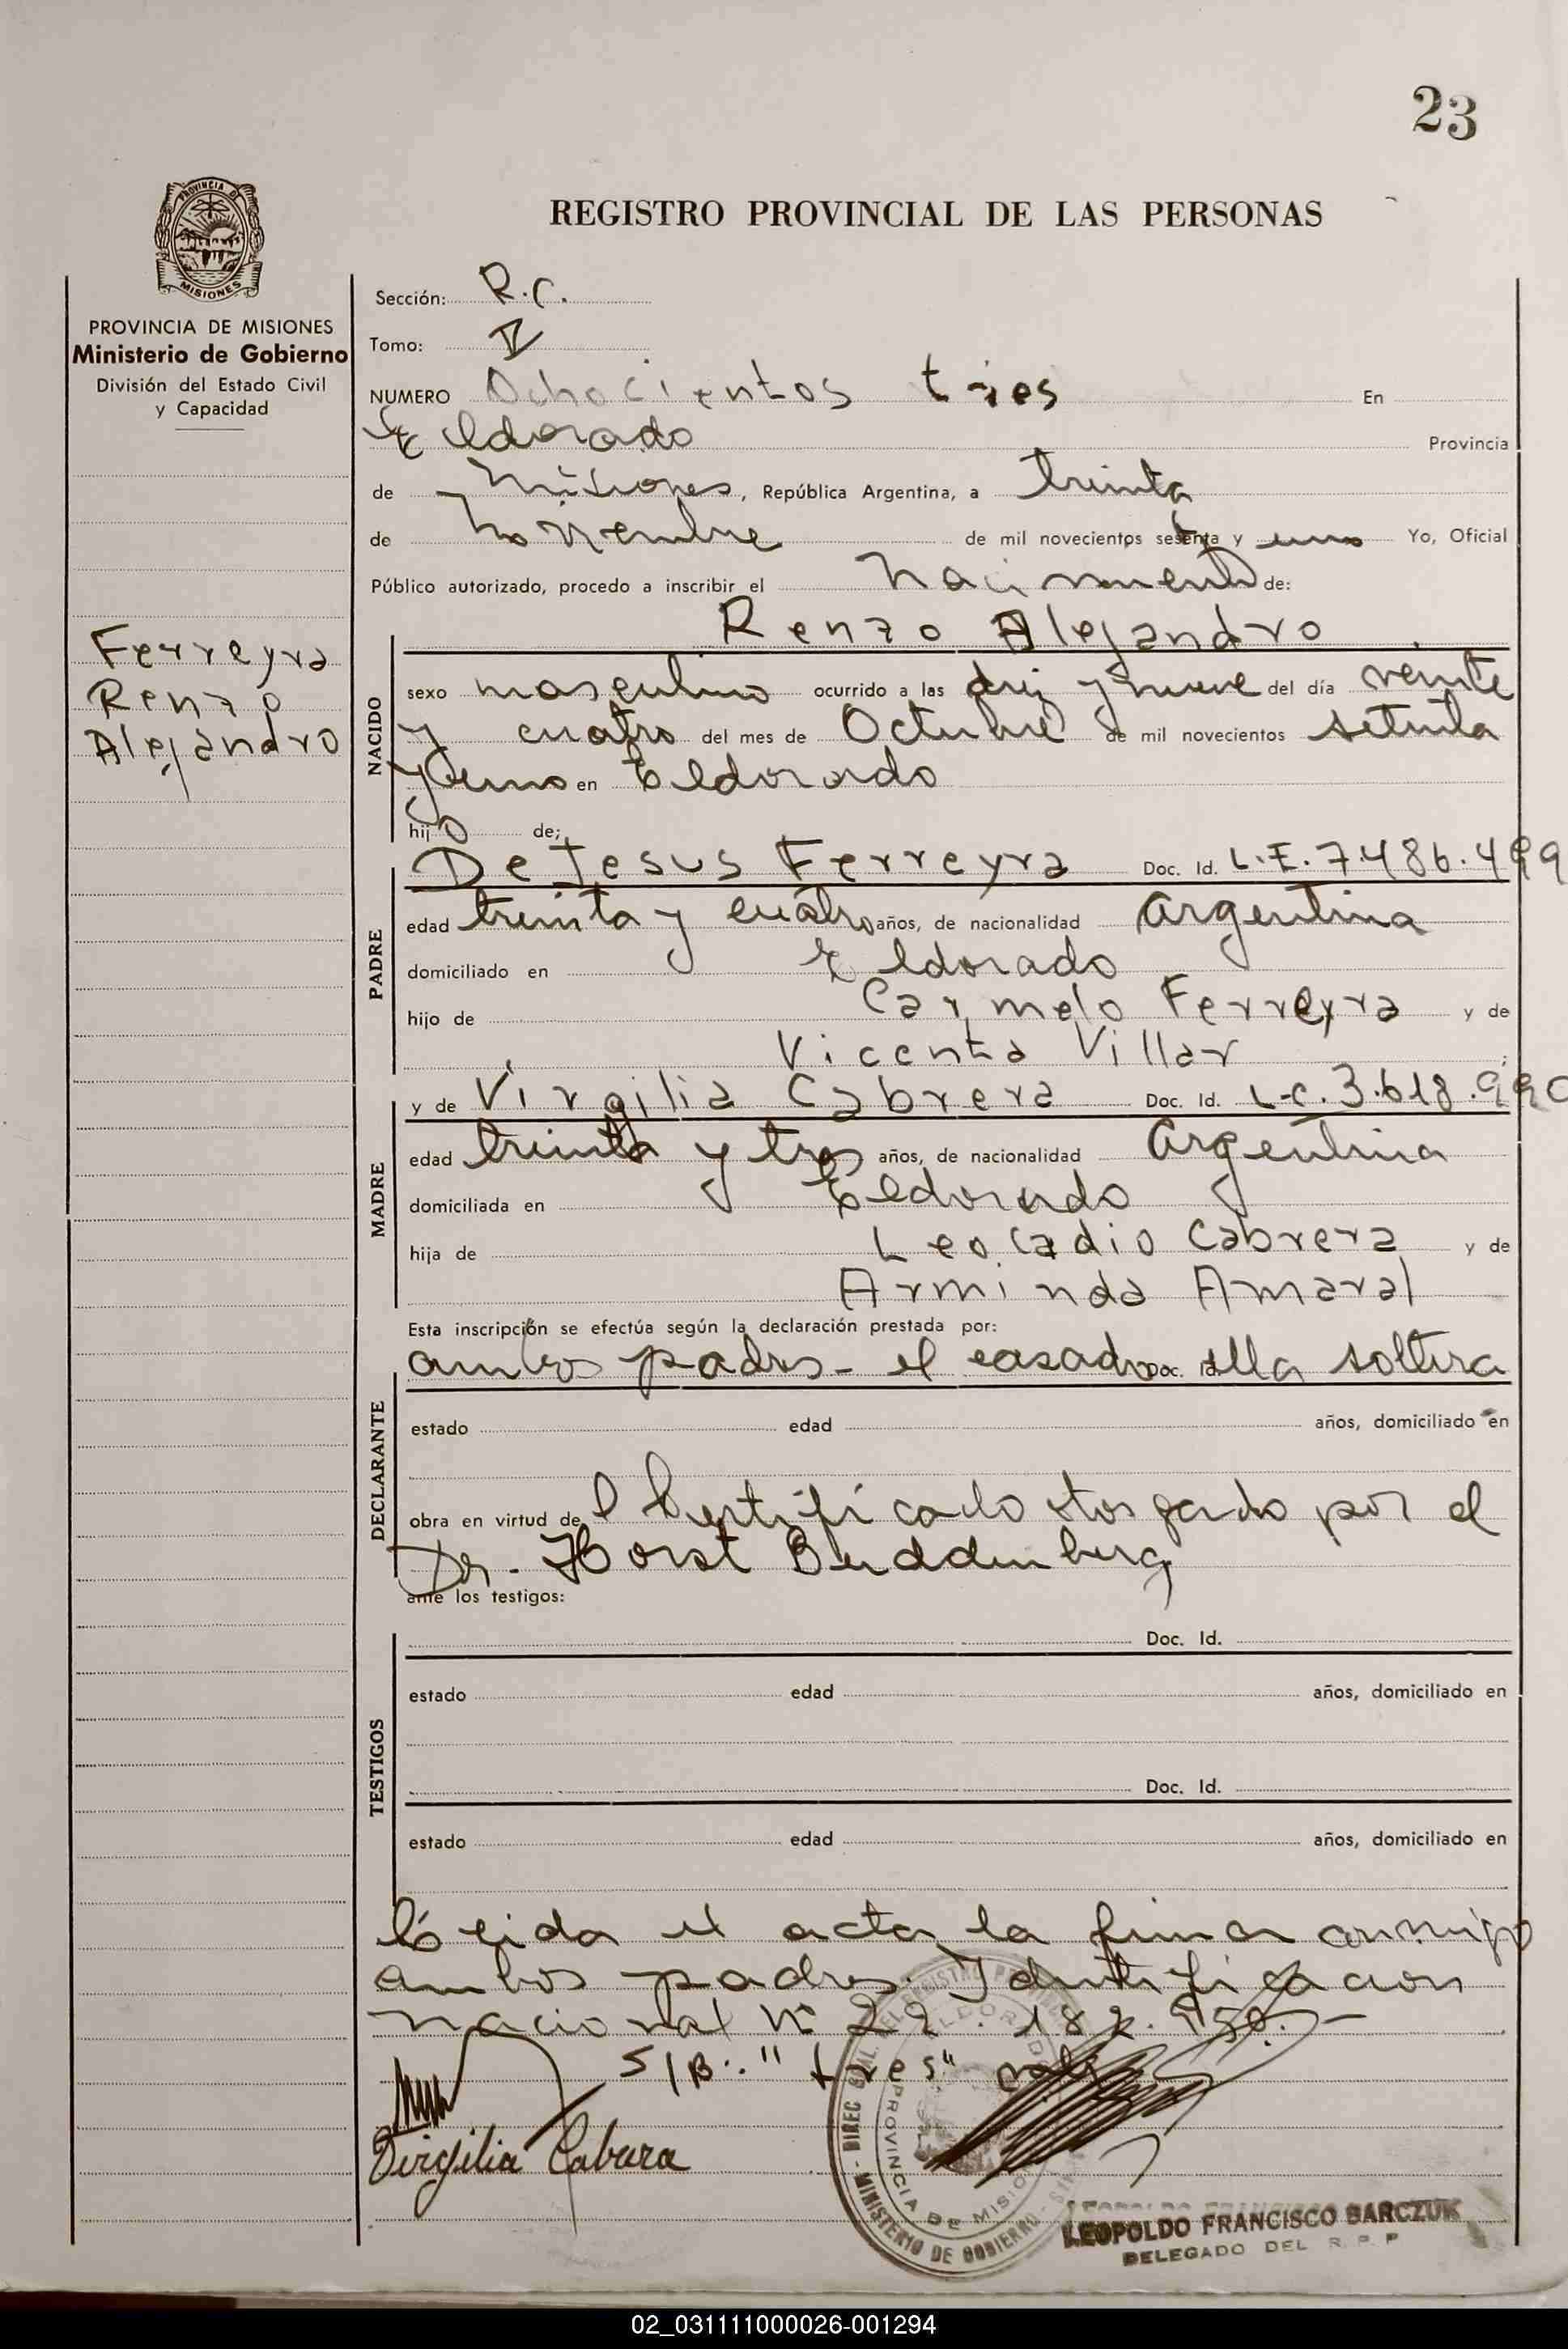 23
REGISTRO PROVINCIAL DE LAS PERSONAS
PROVINCIA DE
MISIONES
PROVINCIA DE MISIONES
Ministerio de Gobierno
División del Estado Civil
y Capacidad
Ferreyra
Renzo
Alejandro
Sección: R.C.
Tomo:
NUMERO Ochocientos tres En
Eldorado Provincia
de Misiones, República Argentina, a treinta
de noviembre de mil novecientos setenta y uno Yo, Oficial
Público autorizado, procedo a inscribir el nacimiento de:
Renzo Alejandro
NACIDO
sexo masculino ocurrido a las diez y nueve del día veinte
y cuatro del mes de Octubre de mil novecientos setenta
y uno en Eldorado
hijo de;
De Jesus Ferreyra Doc. Id. L.E. 7.486.499
PADRE
edad treinta y cuatro años, de nacionalidad Argentina
domiciliado en Eldorado
hijo de Carmelo Ferreyra y de
Vicenta Villar ;
y de Virgilia Cabrera Doc. Id. L.C. 3.618.990
MADRE
edad treinta y tres años, de nacionalidad Argentina
domiciliada en Eldorado
hija de Leocadio Cabrera y de
Arminda Amaral
Esta inscripción se efectúa según la declaración prestada por:
ambos padres - el casado Doc. Id. ella soltera
DECLARANTE
estado edad años, domiciliado en
obra en virtud del Certificado otorgado por el
Dr. Horst Buddenberg
ante los testigos:
TESTIGOS
Doc. Id.
estado edad años, domiciliado en
Doc. Id.
estado edad años, domiciliado en
Leida el acta, la firman conmigo
ambos padres. Identificacion
nacional Nº 22.182.950.-
S/B: "tres" vale
Virgilia Cabrera
DIREC GRAL. DEL REGISTRO
ELDORADO
PROVINCIA DE MISIO
MINISTERIO DE GOBIERNO
LEOPOLDO FRANCISCO BARCZUK
DELEGADO DEL R. P. P
02_031111000026-001294